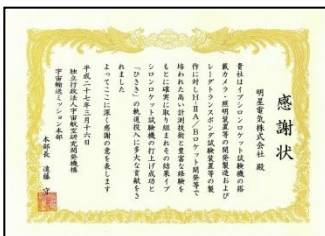 感謝状
明星電気株式会社 殿
貴社はイプシロンロケット試験機の搭
載カメラ・照明装置等の開発製造および
レーダトランスポンダ試験装置等の製
作に対しH-ⅡA/Bロケット開発等で
培われた高い計測技術と豊富な経験を
もとに確実に取り組まれその結果イプ
シロンロケット試験機の打上げ成功と
「ひさき」の軌道投入に多大な貢献をさ
れました
よってここに深く感謝の意を表します
平成二十七年三月十六日
独立行政法人宇宙航空研究開発機構
宇宙輸送ミッション本部
本部長 遠藤 守